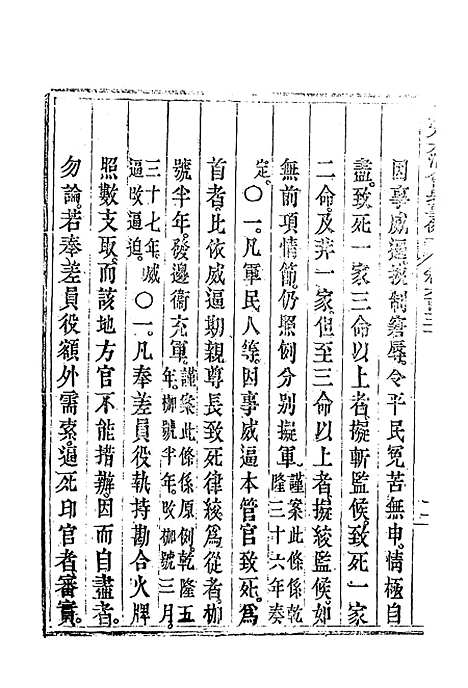 因事威逼挾制窘辱令平民冤苦無申情極自
盡致死一家三命以上者擬斬監候致死一家
二命及非一家但至三命以上者擬絞監候如
無前項情節仍照例分別擬軍謹案此條係乾隆三十六年奏
定〇一凡軍民人等因事威逼本管官致死為
首者比依威逼期親尊長致死律絞為從者枷
號半年發邊衛充軍謹案此條係原例乾隆五年枷號半年改枷號三月
三十七年威逼改逼迫〇一凡奉差員役執持勘合火牌
照數支取而該地方官不能措辦因而自盡者
勿論若奉差員役額外需索逼死印官者審實